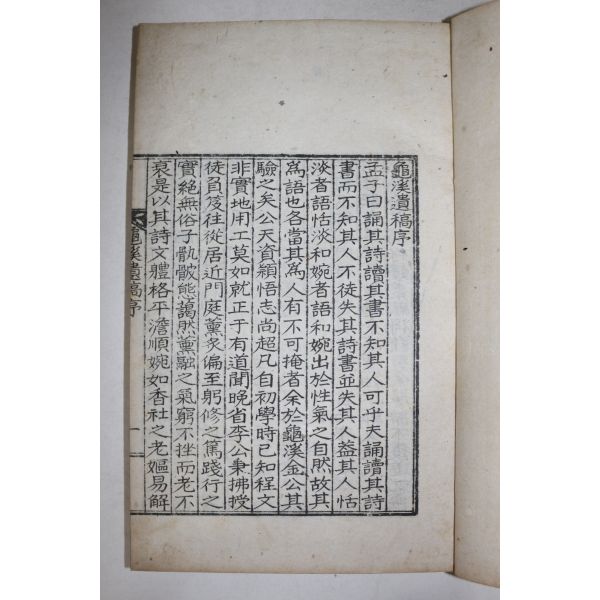 龜溪遺稿序
孟子曰誦其詩讀其書不知其人可乎夫誦讀其詩
書而不知其人不徒失其詩書並失其人益其人恬
淡者語恬淡和婉者語和婉出於性氣之自然故其
爲語也各當其爲人有不可掩者余於龜溪金公其
驗之矣公天資穎悟志尚超凡自初學時已知程文
非實地用工莫如就正于有道聞晩省李公秉拂授
徒負笈往從居近門庭薰炙偏至躬修之篤踐行之
實絶無俗子骫骳態藹然薰融之氣窮不挫而老不
衰是以其詩文軆格平澹順婉如香社之老嫗易解
龜溪遺稿序
一